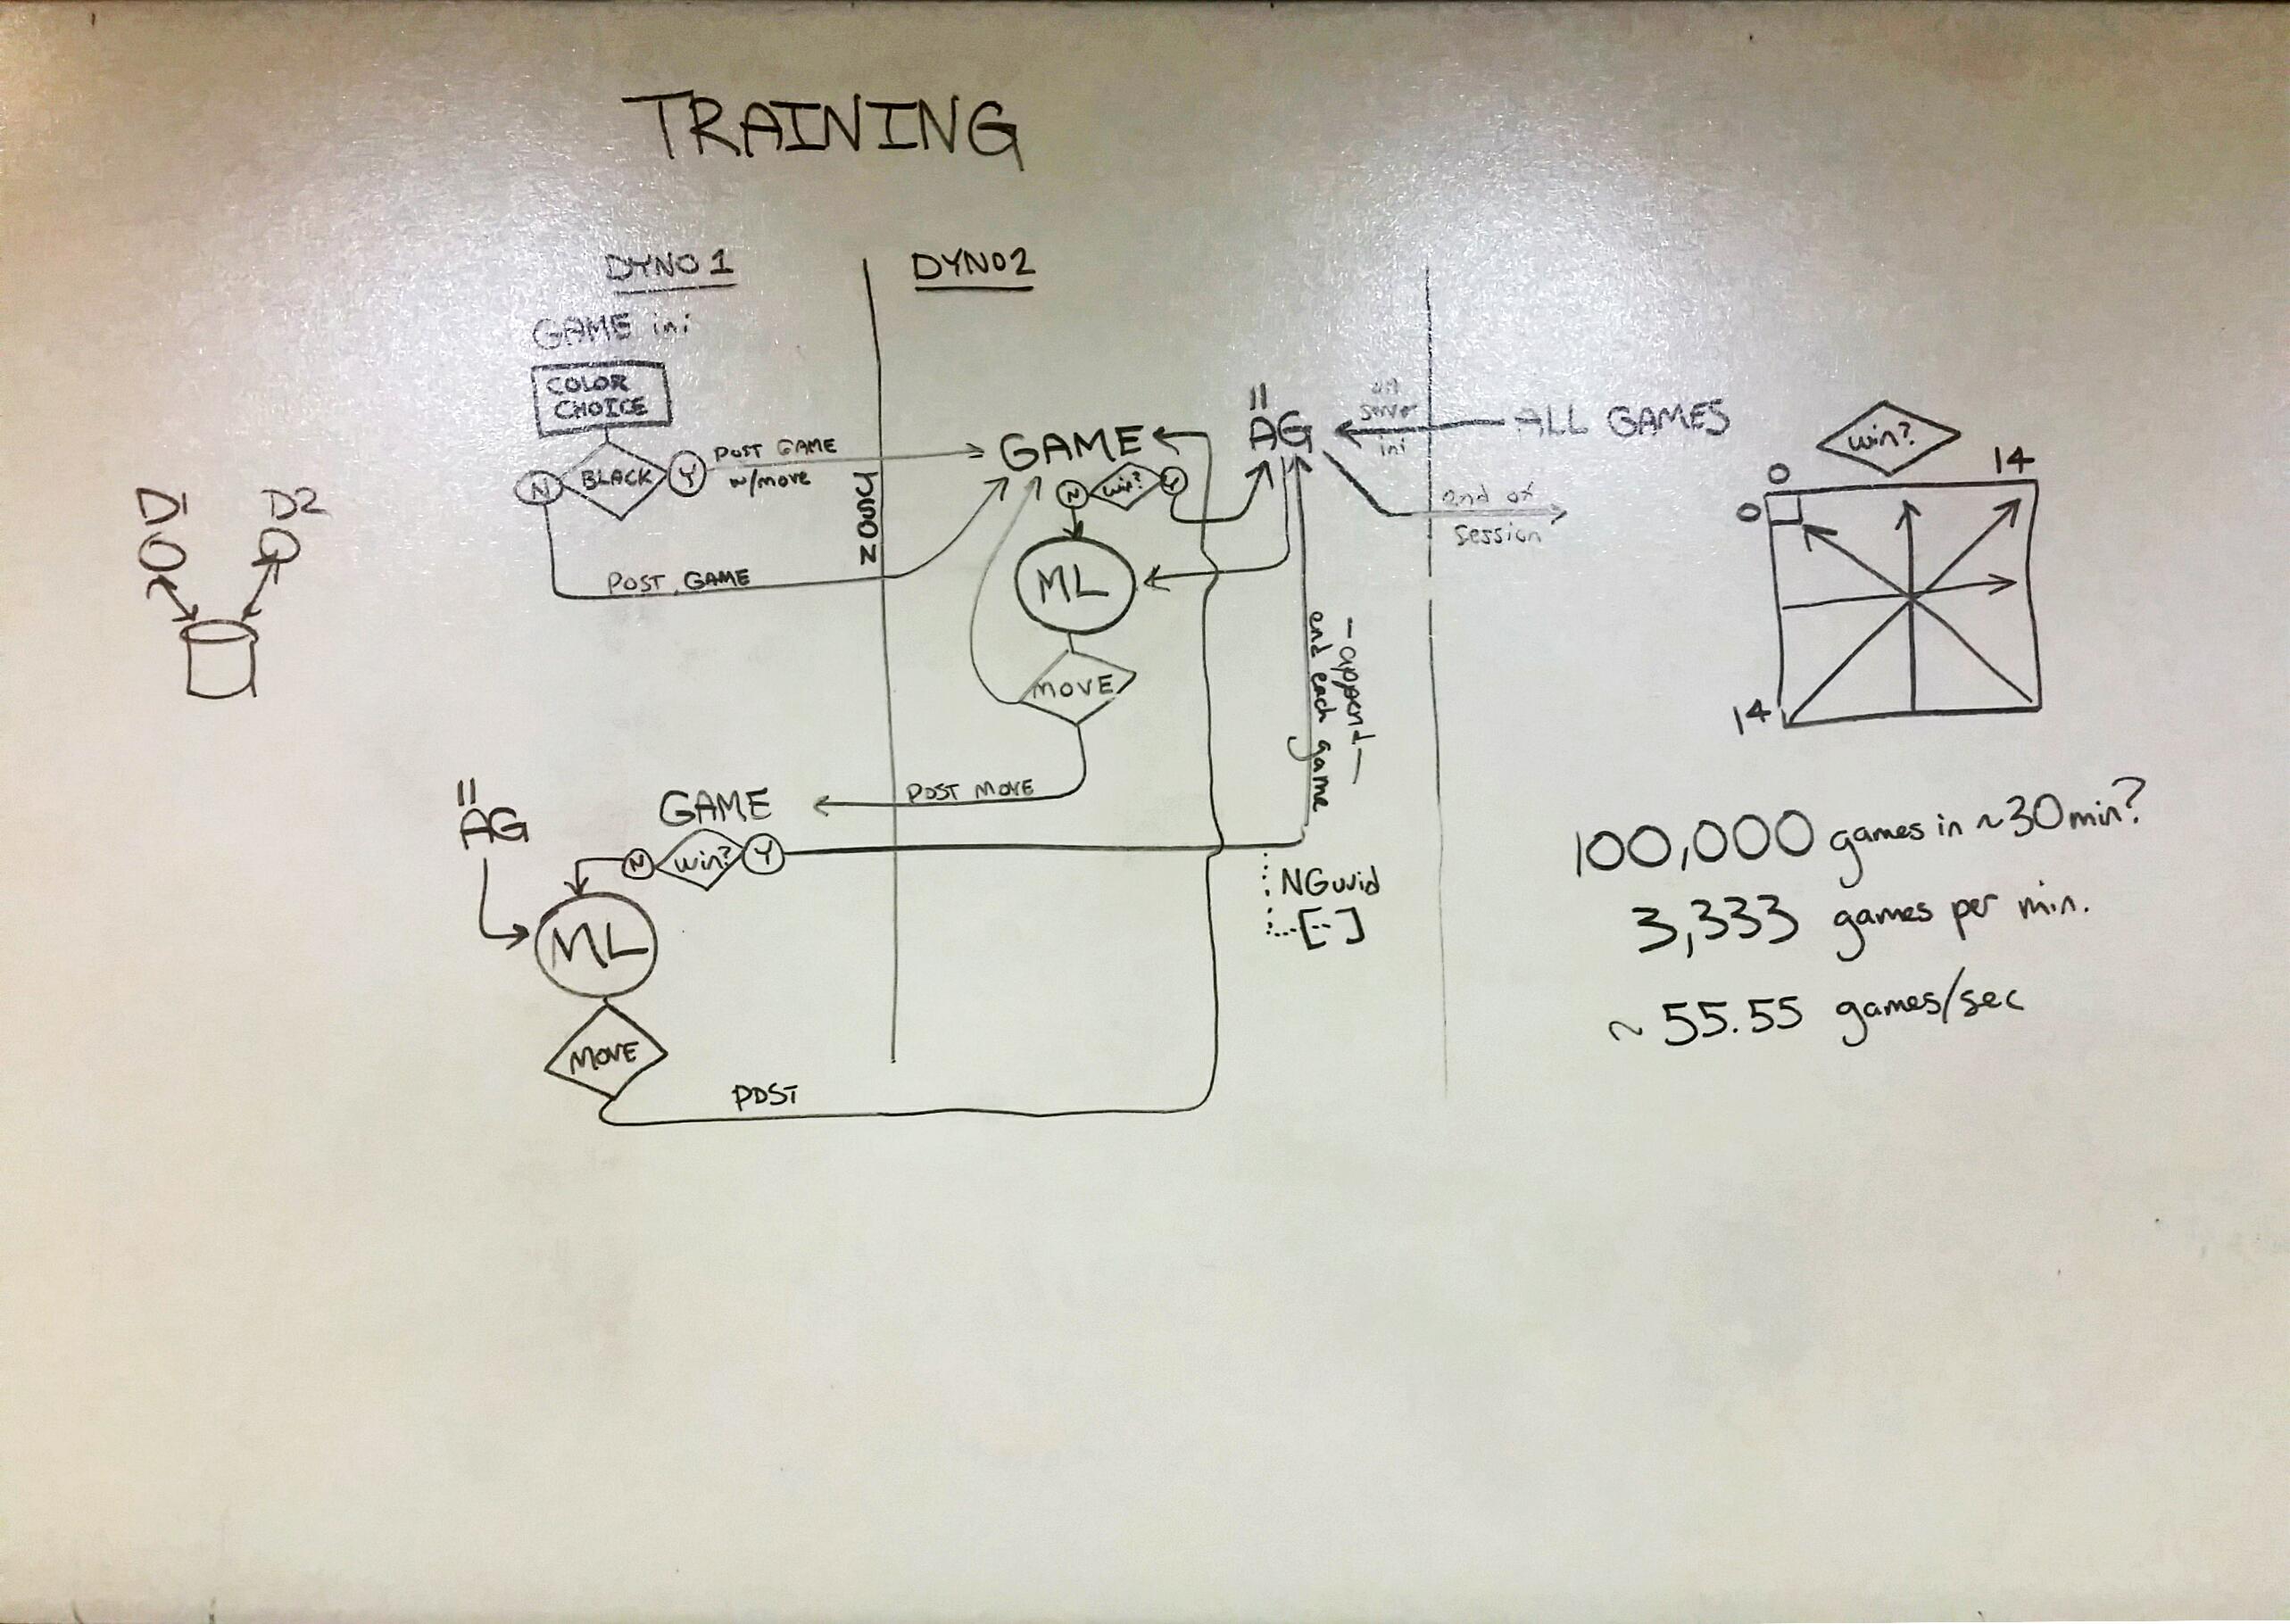 TRAINING
DYNO 1
DYNO2
GAME ini
COLOR
CHOICE
N
BLACK
Y
POST GAME
w/move
POST GAME
GAME
N
win?
Y
ML
MOVE
POST MOVE
"
AG
on
server
ini
ALL GAMES
end of
session
- append -
end each game
D1
D2
"
AG
GAME
N
win?
Y
ML
MOVE
POST
NGuuid
[--]
win?
0
14
0
14
100,000 games in ~30min?
3,333 games per min.
~55.55 games/sec